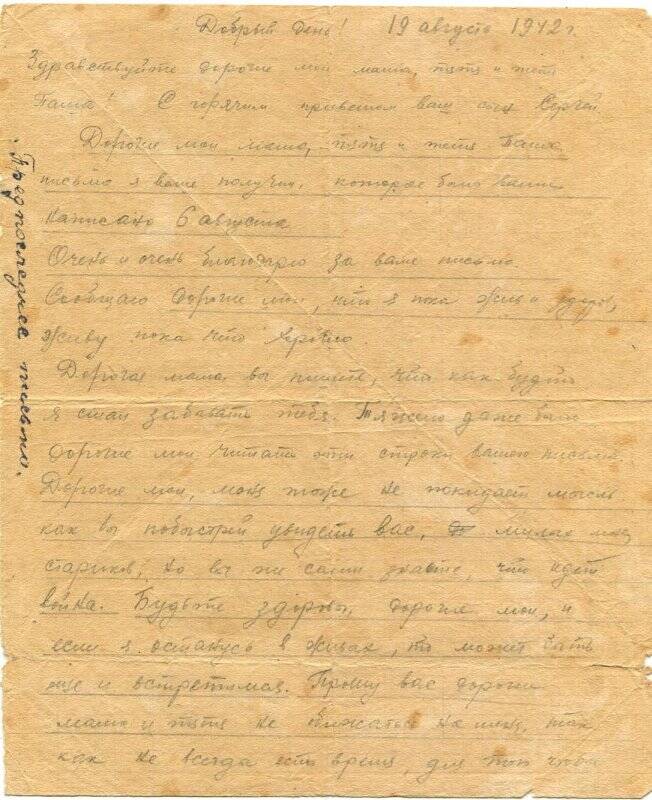 Добрый день! 19 августа 1942 г.
Здравствуйте дорогие мои мама, тятя и тётя
Паша! С горячим приветом ваш сын Сергей
Дорогие мои мама, тятя и тётя Паша
письмо я ваше получил, которое было вами
написано 6 августа
Очень и очень благодарю за ваше письмо.
Сообщаю дорогие мои, что я пока жив и здоров,
живу пока что хорошо.
Дорогая мама вы пишите, что как будто
я стал забывать тебя. Тяжело даже было
дорогие мои читать эти строки вашего письма
Дорогие мои, меня тоже не покидает мысль
как бы побыстрей увидеть вас, милых моих
стариков, но вы же сами знаете, что идет
война. Будьте здоровы, дорогие мои, и
если я останусь в живых, то может быть
еще и встретимся. Прошу вас дорогие
мама и тятя не обижаться на меня, так
как не всегда есть время, для того чтобы
Предпоследнее письмо.